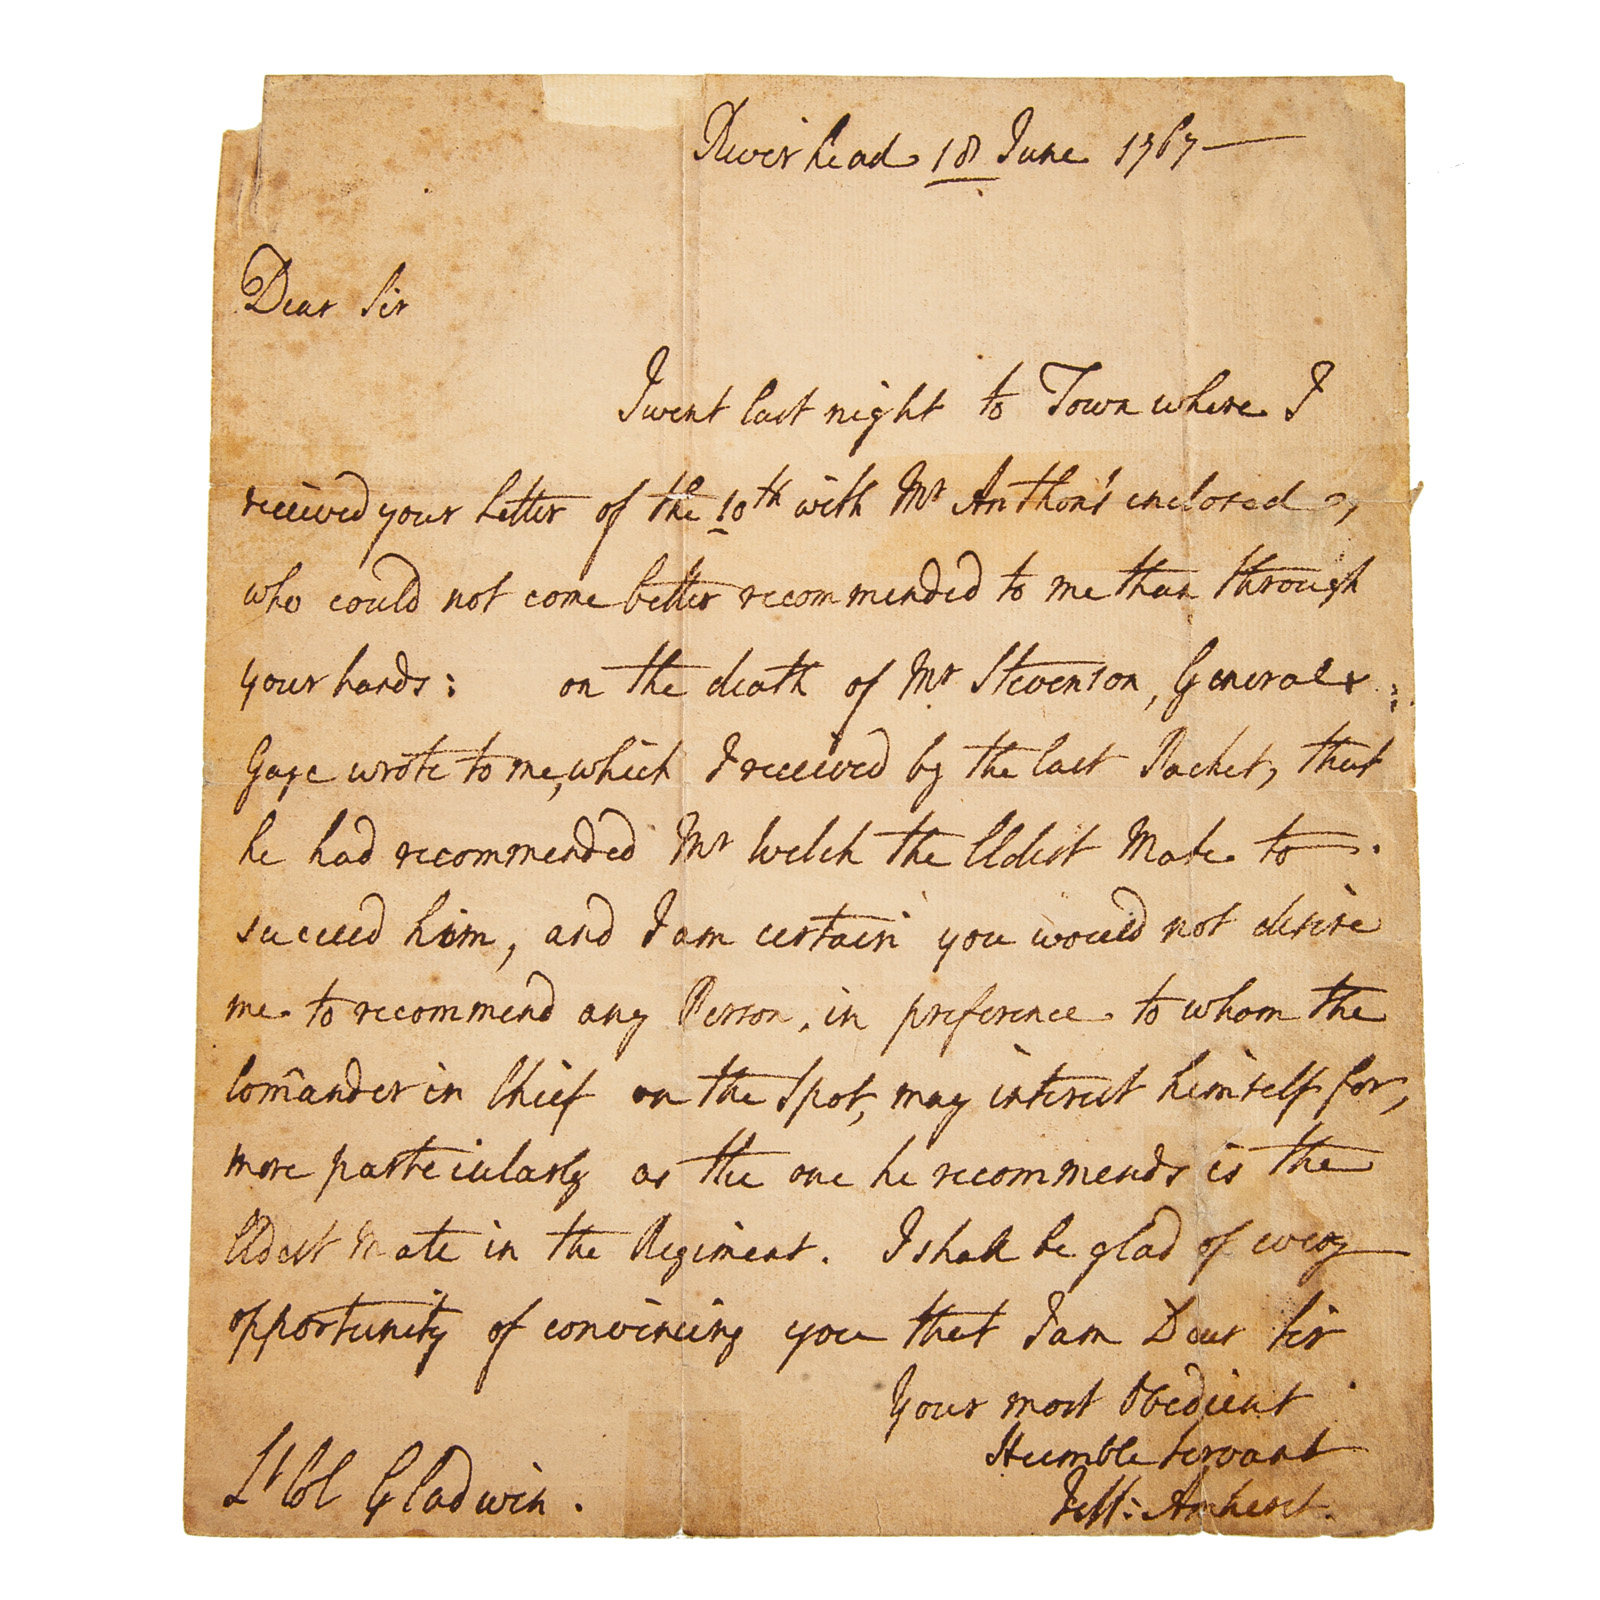 Riverhead 18 June 1767
Dear Sir
I went last night to Town where I
received your Letter of the 10th with Mr Anthon's enclosed,
who could not come better recommended to me than through
your hands: on the death of Mr Stevenson, General
Gage wrote to me, which I received by the last Packet, that
he had recommended Mr Welch the Eldest Mate to
succeed him, and I am certain you would not desire
me to recommend any Person, in preference to whom the
Com̃ander in Chief on the Spot, may interest himself for,
more particularly as the one he recommends is the
Eldest Mate in the Regiment. I shall be glad of every
opportunity of convincing you that I am Dear Sir
Your most Obedient
Humble Servant
Jeff: Amherst.
Lt Col Gladwin.